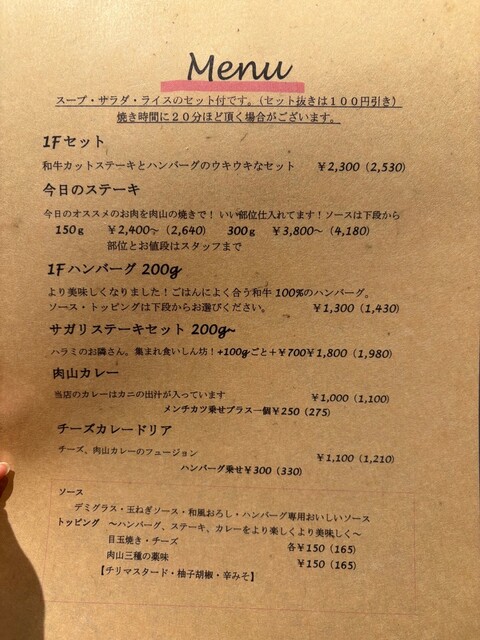 Menu
スープ・サラダ・ライスのセット付です。(セット抜きは１００円引き)
焼き時間に２０分ほど頂く場合がございます。
1Fセット
和牛カットステーキとハンバーグのウキウキなセット ￥2,300 (2,530)
今日のステーキ
今日のオススメのお肉を肉山の焼きで！ いい部位仕入れてます！ソースは下段から
150g ￥2,400~ (2,640) 300g ￥3,800~ (4,180)
部位とお値段はスタッフまで
1Fハンバーグ 200g
より美味しくなりました！ごはんによく合う和牛 100%のハンバーグ。
ソース・トッピングは下段からお選びください。 ￥1,300 (1,430)
サガリステーキセット 200g~
ハラミのお隣さん。集まれ食いしん坊！+100gごと+￥700￥1,800 (1,980)
肉山カレー
当店のカレーはカニの出汁が入っています ￥1,000 (1,100)
メンチカツ乗せプラス一個￥250 (275)
チーズカレードリア
チーズ、肉山カレーのフュージョン ￥1,100 (1,210)
ハンバーグ乗せ￥300 (330)
ソース
デミグラス・玉ねぎソース・和風おろし・ハンバーグ専用おいしいソース
トッピング ～ハンバーグ、ステーキ、カレーをより楽しくより美味しく～
目玉焼き・チーズ 各￥150 (165)
肉山三種の薬味 ￥150 (165)
【チリマスタード・柚子胡椒・辛みそ】